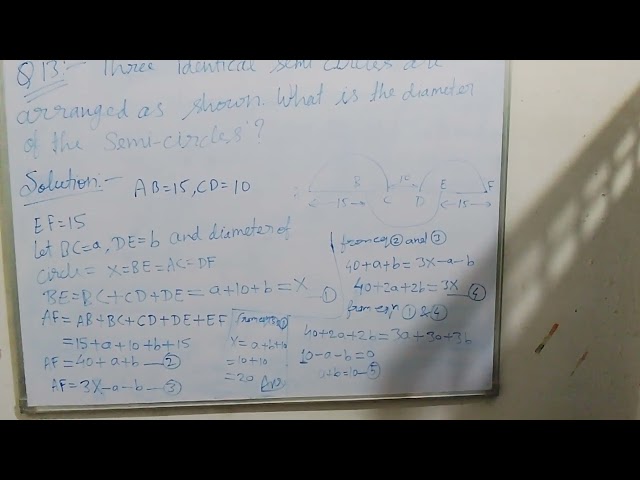 Q13:- Three identical semi circles are
arranged as shown. What is the diameter
of the Semi-circles?
Solution:- AB=15, CD=10
B 10 E F
C D
15 15
EF=15
let BC=a, DE=b and diameter of
circle= X=BE=AC=DF
BE=BC+CD+DE= a+10+b=X —①
AF= AB+BC+CD+DE+EF
=15+a+10+b+15
AF=40+a+b —②
AF=3X-a-b —③
X=a+b+10
=10+10
=20 Ans
from eq ② and ③
40+a+b=3X-a-b
40+2a+2b=3X —④
from eqn ① & ④
40+2a+2b=3a+30+3b
10-a-b=0
a+b=10 —⑤